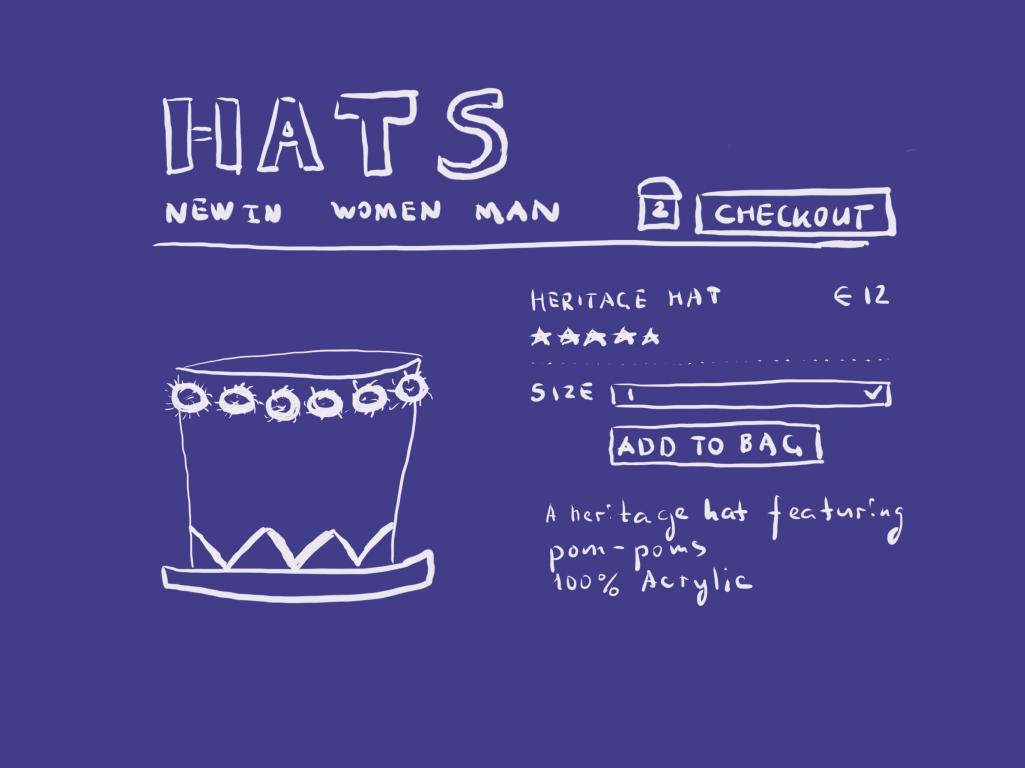 HATS
NEW IN WOMEN MAN 2 CHECKOUT
HERITAGE HAT € 12
SIZE 1
ADD TO BAG
A heritage hat featuring
pom-poms
100% Acrylic